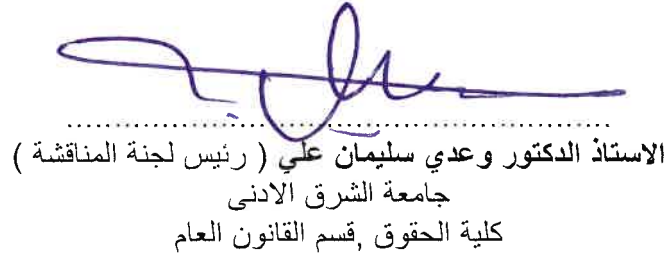 الاستاذ الدكتور وعدي سليمان علي ( رئيس لجنة المناقشة )
جامعة الشرق الادنى
كلية الحقوق ,قسم القانون العام